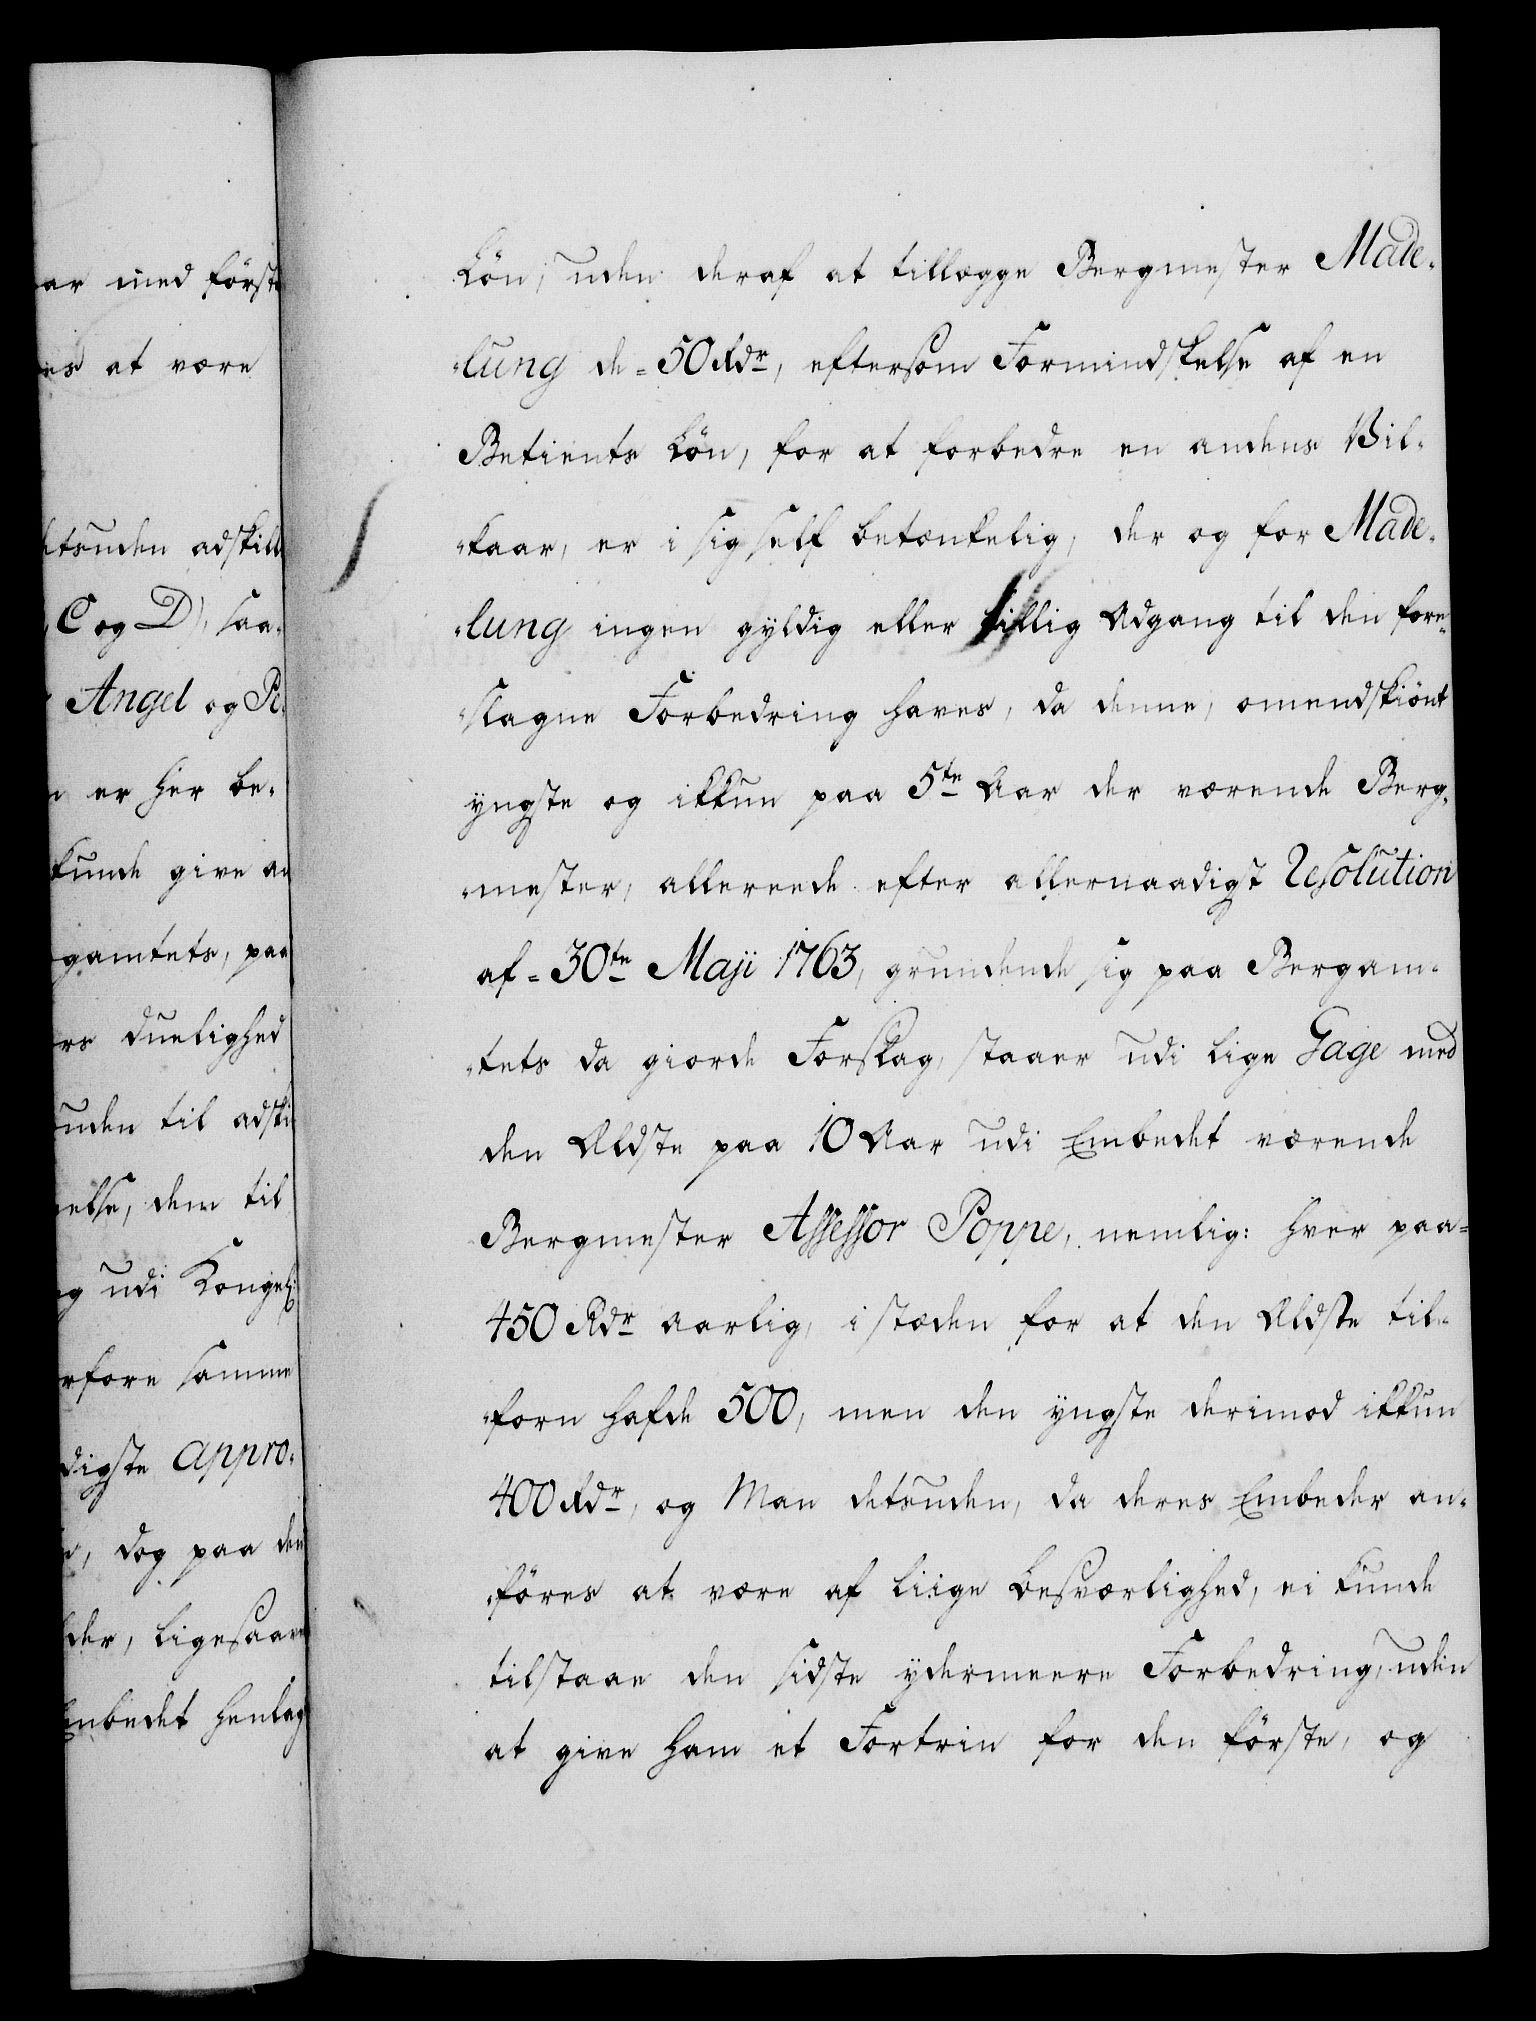 ar med første
es at være
detsuden adskill
C og D), saa-
Angel og Pe-
n er her be-
kunde give an
gamtets, paa
rs duelighed
uden til adski
else, dem til
g udi Kongel:
rfore samme
digste appro-
e, dog paa den
der, ligesaa
Embedet henlag
Løn, uden deraf at tillægge Bergmester Made-
-lung de = 50 Rdr, eftersom Formindskelse af en
Betients Løn, for at forbedre en andens Vil-
-kaar, er i sig self betænkelig, der og for Made-
-lung ingen gyldig eller billig Adgang til den fore-
-slagne Forbedring haves, da denne, omendskiønt
yngste og ikkun paa 5te Aar der værende Berg-
-mester, allereede efter allernaadigst Resolution
af = 30te Maji 1763, grundende sig paa Bergam-
-tets da giorde Forslag, staaer udi lige Gage med
den Ældste paa 10 Aar udi Embedet værende
Bergmester Assessor Poppe, nemlig: hver paa =
450 Rdr aarlig, i stæden for at den Ældste til-
-forn hafde 500, men den yngste derimod ikkun
400 Rdr, og Man detsuden, da deres Embeder an-
-føres at være af liige besværlighed, ei kunde
tilstaae den sidste ydermeere Forbedring, uden
at give ham et Fortrin for den første, og